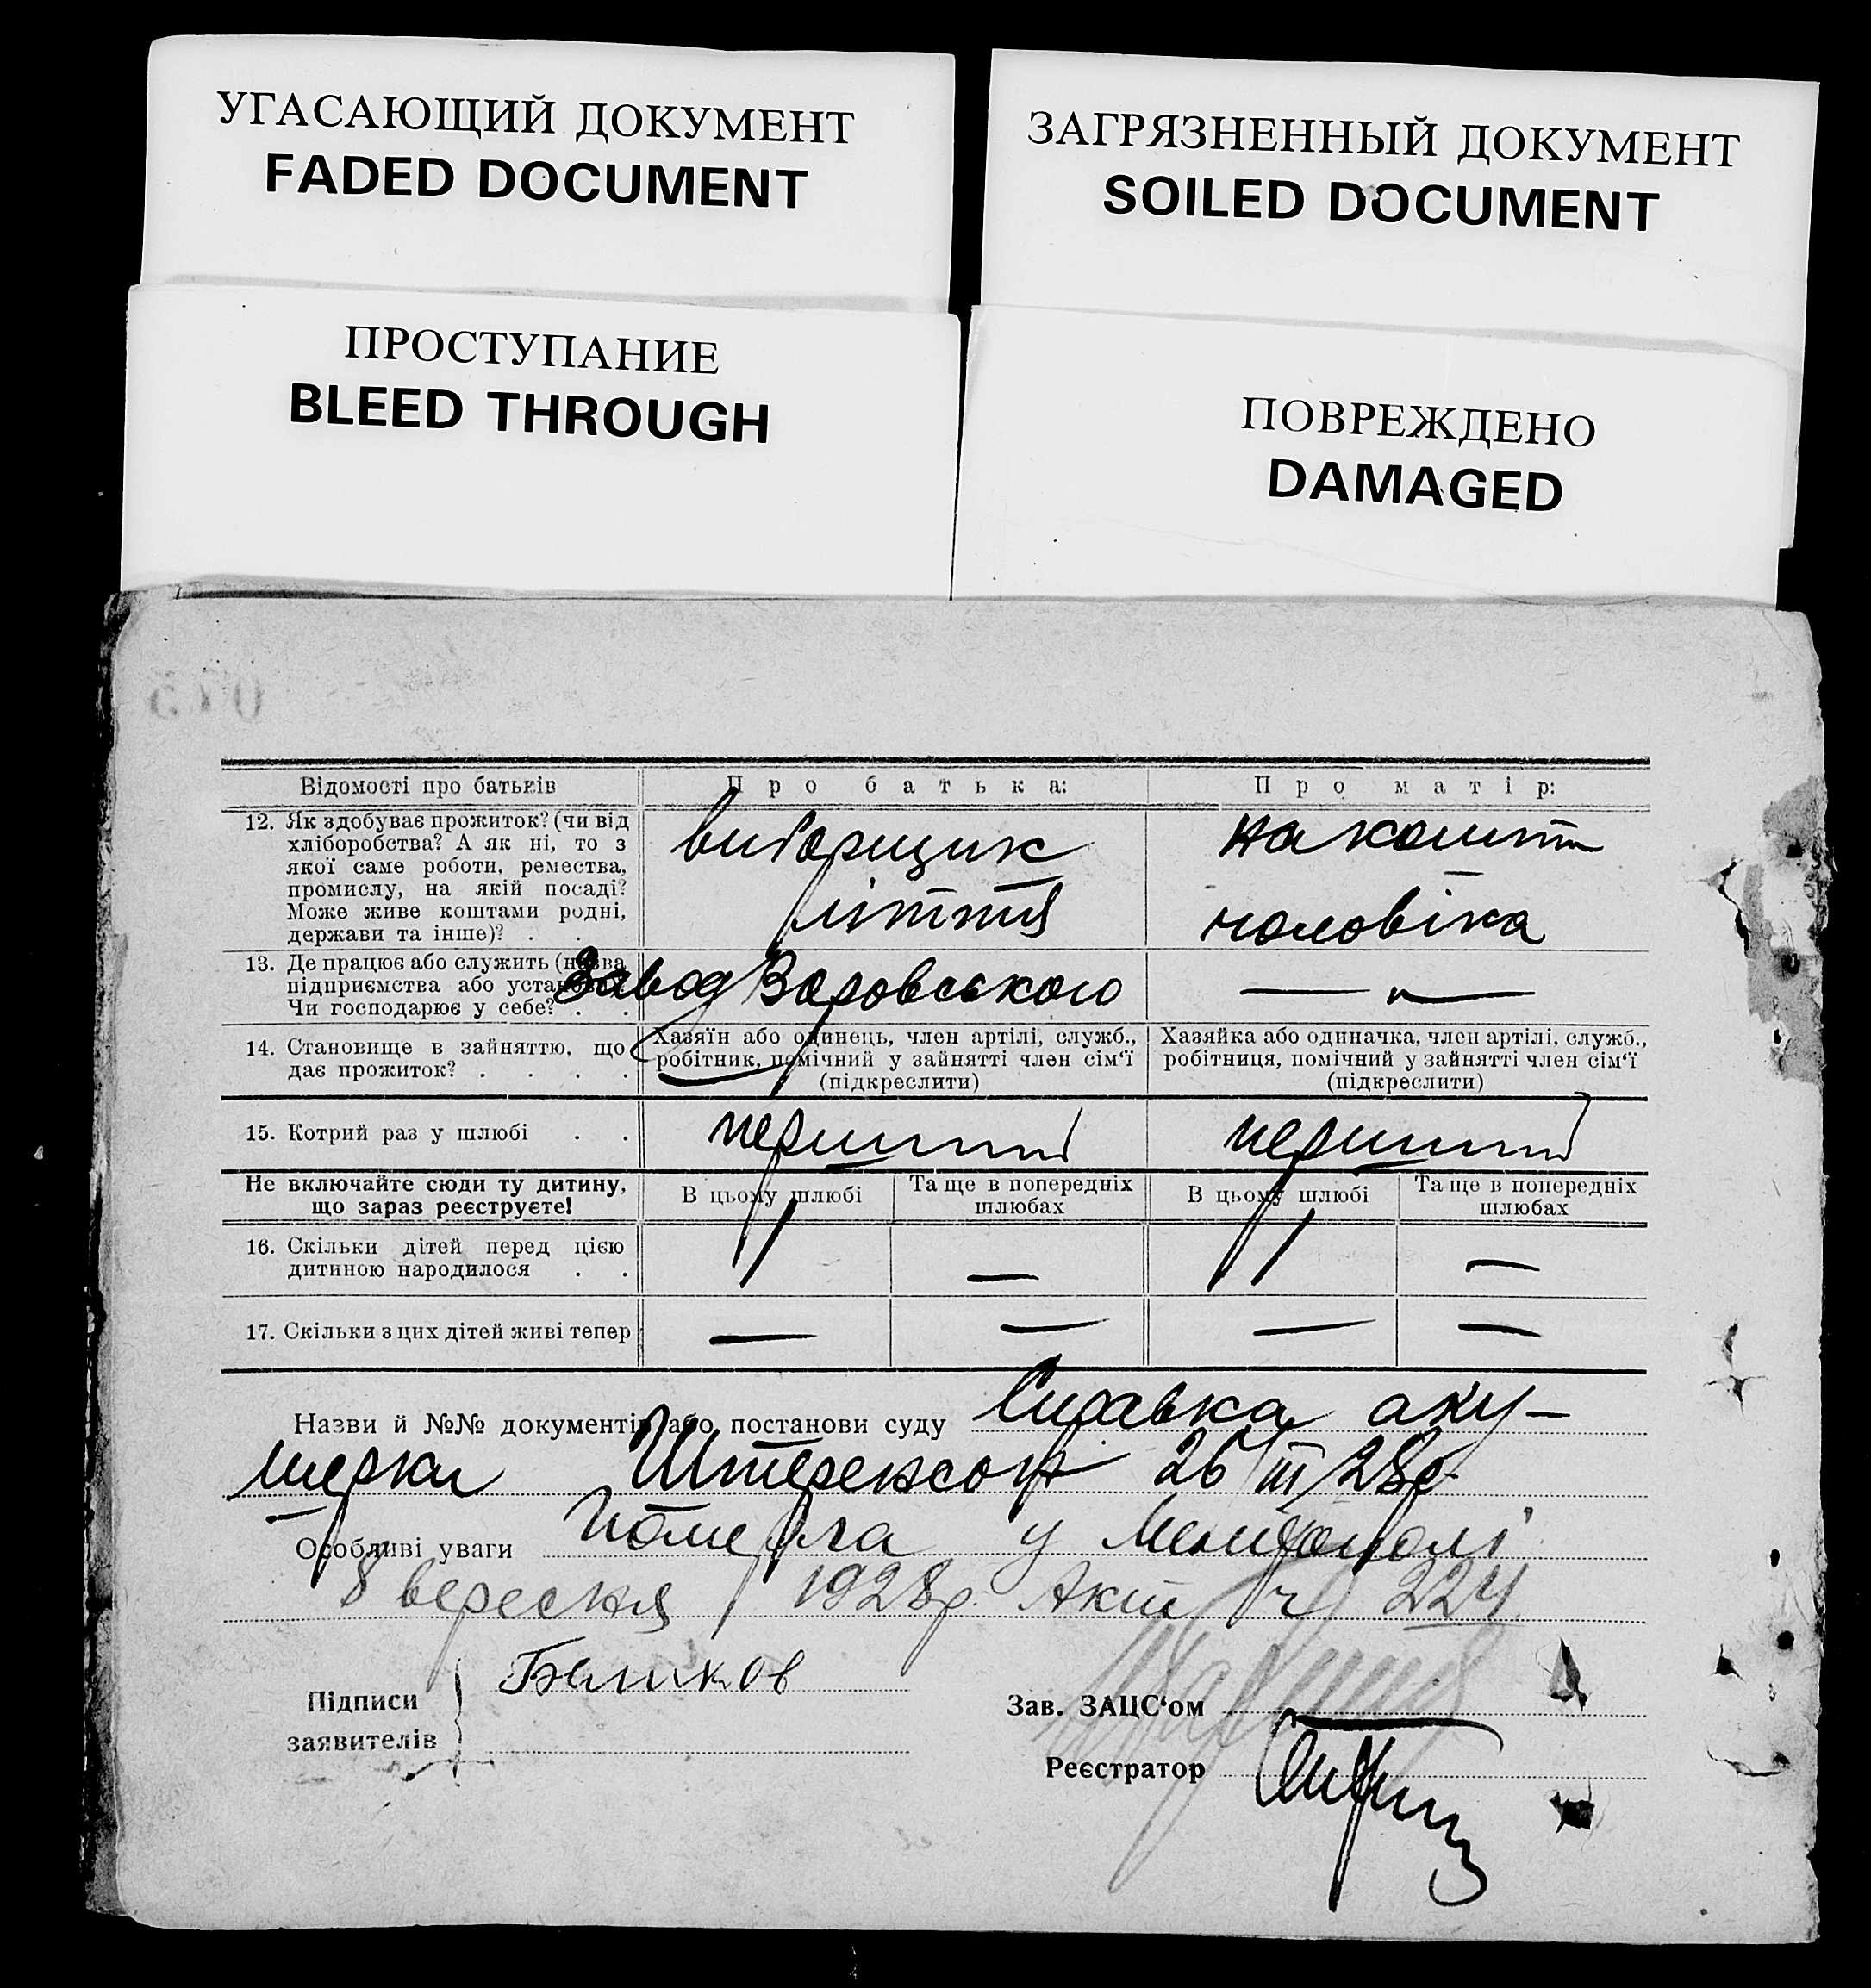 УГАСАЮЩИЙ ДОКУМЕНТ
FADED DOCUMENT
ЗАГРЯЗНЕННЫЙ ДОКУМЕНТ
SOILED DOCUMENT
ПРОСТУПАНИЕ
BLEED THROUGH
ПОВРЕЖДЕНО
DAMAGED
Відомості про батьків
Про батька:
Про матір:
12. Як здобуває прожиток? (чи від
хліборобства? А як ні, то з
якої саме роботи, ремества,
промислу, на якій посаді?
Може живе коштами родні,
держави та інше)? . . .
виборщик
лїття
на кошт
чоловіка
13. Де працює або служить (назва
підприємства або установи)
Чи господарює у себе? . .
Завод Воровського
— " —
14. Становище в зайняттю, що
дає прожиток? . . . .
Хазяїн або одинець, член артілі, служб.,
робітник, помічний у зайнятті член сім'ї
(підкреслити)
Хазяйка або одиначка, член артілі, служб.,
робітниця, помічний у зайнятті член сім'ї
(підкреслити)
15. Котрий раз у шлюбі . .
перший
перший
Не включайте сюди ту дитину,
що зараз реєструєте!
В цьому шлюбі
Та ще в попередніх
шлюбах
В цьому шлюбі
Та ще в попередніх
шлюбах
16. Скільки дітей перед цією
дитиною народилося . .
1 — 1 —
17. Скільки з цих дітей живі тепер
— — — —
Назви й №№ документів або постанови суду Справка аку-
шерки 26/III/28р
Особливі уваги Померла у Мелітополі
8 вересня 1928р. Акт ч 224
Підписи
заявителів
Зав. ЗАЦС'ом
Реєстратор